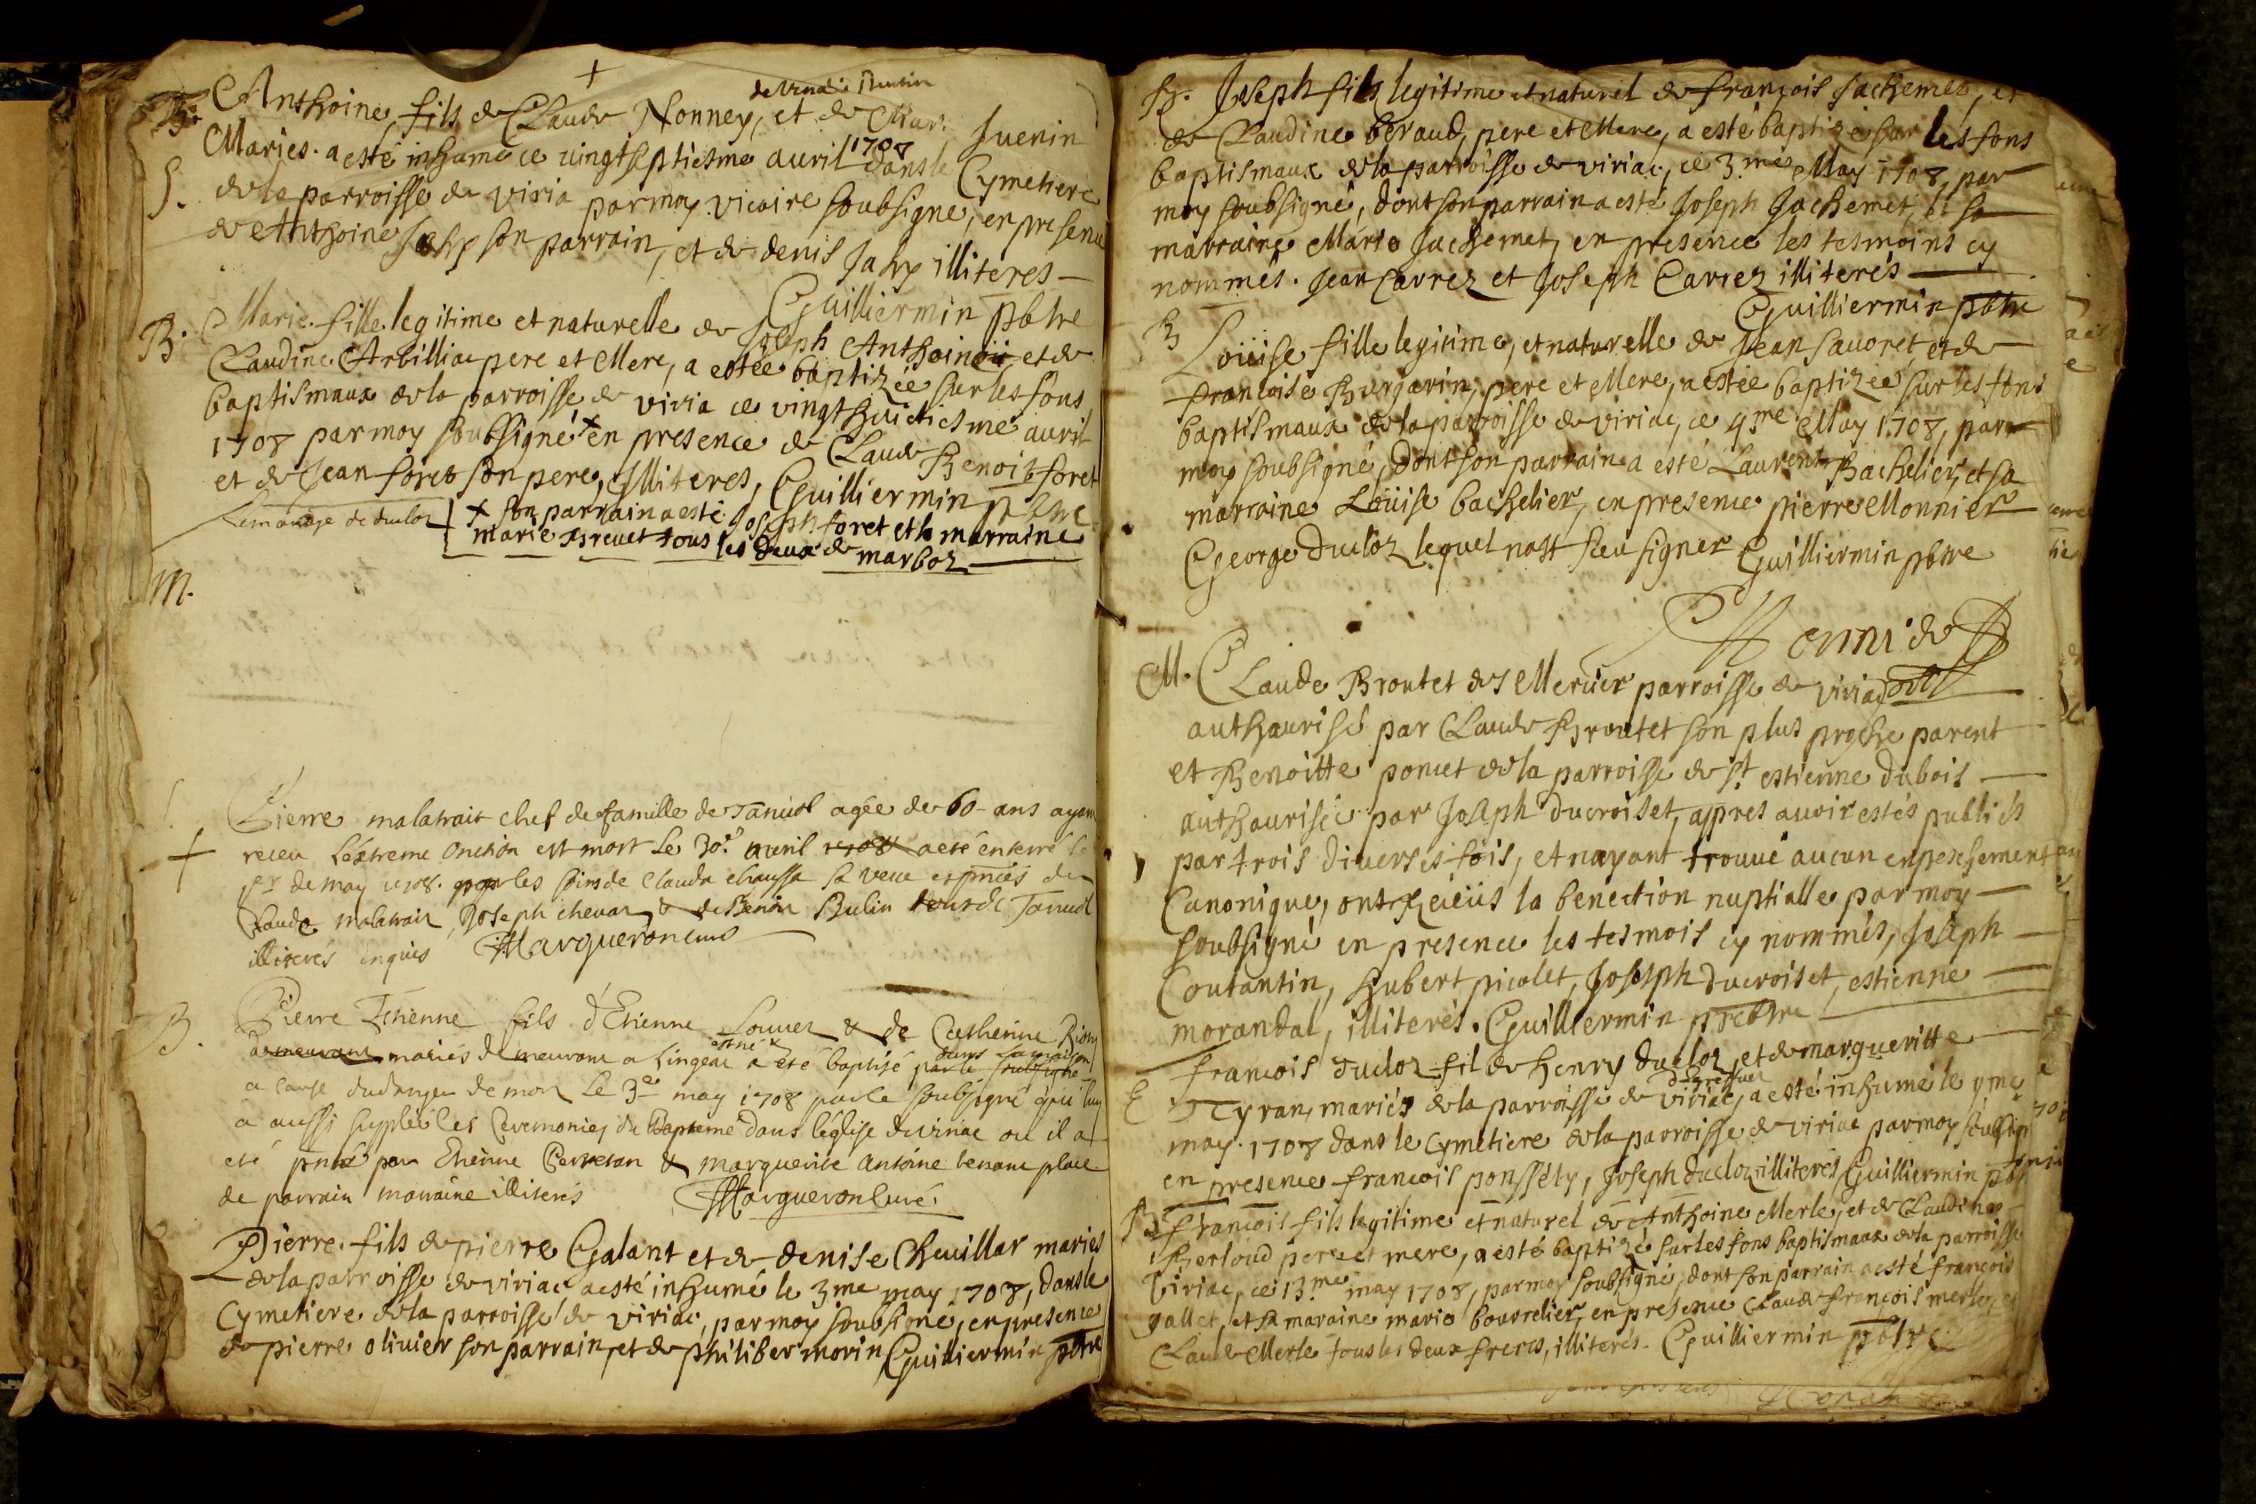 Anthoine fils de Claude Nonney, et de Mar. Juenin
Maries. a esté inhumé ce vingtseptiesme auril 1708 dans le Cymetiere
S. de la parroisse de viria par moy vicaire soubsigné, en presence
de Anthoine Josep son parrain, et de denis Jary illiteres
Guilliermin pbtre
B. Marie fille legitime et naturelle de Joseph Anthoinoü et de
Claudine Arbilliac pere et Mere, a estée baptizée sur les fons
baptismaux de la parroisse de viria ce vingthuictiesme auril
1708 par moy soubsigné + en presence de Claude Benoist foret
et de Jean foret son pere, illiteres, Guilliermin pbtre
+ son parrain a esté Joseph foret et la marraine
marie breuet tous les deux de marboz
M.
Pierre malatrait chef de famille de Tanuol agée de 60 ans ayen
receu Léxtreme Onction est mort Le 30e auril 1708 a eté enterré le
per de may 1708. par les soins de Claude chaussa sa veue et priés de
Claude malatrait, Joseph cheuat & de Benoit Bulin tous de Tanuol
illiterés enquis Marqueron curé
B. Pierre Etienne fils d'Etienne Louuet & de Catherine Bion
demeurant mariés demeurant a Lingeat a eté baptisé par le soubsigné dans la maison
a cause du danger de mort Le 3e may 1708 par le soubsigné qui luy
a aussi supplée les Ceremonies du Bapteme dans l'église de viriac ou il a
eté pnté par Etienne Carreton & marguerite antoine tenant place
de parrain marraine illiterés Marqueron Curé
Pierre fils de pierre Galant et de denise Cheuillar maries
de la parroisse de viriac a esté inhumé le 3me may 1708, dans le
Cymetiere de la parroisse de viriac, par moy soubsigné, en presence
de pierre oliuier son parrain, et de philiber morin Guilliermin pbtre
B. Joseph fils legitime et naturel de françois Jachemet, et
de Claudine beraud, pere et Mere, a esté baptizé sur les fons
baptismaux de la parroisse de viriac, ce 3me May 1708, par
moy soubsigné, dont son parrain a esté Joseph Jachemet, et sa
marraine Marie Jachemet, en presence les tesmoins cy
nommés. Jean Carrez et Joseph Carrez illiterés
Guilliermin pbtre
B Loüise fille legitime, et naturelle de Jean sauoret et de
françoise Burjarin, pere et Mere, a estée baptizée sur les fons
baptismaux de la parroisse de viriac, ce 4me May 1708, par
moy soubsigné, dont son parrain a esté Laurent Bachelier, et sa
marraine Loüise bachelier, en presence pierre Monnier
George Ducloz lequel nast sceu signer Guilliermin pbtre
M. Claude Broutet de Meruer parroisse de viriac
authaurisé par Claude Broutet son plus proche parent
et Benoitte poncet de la parroisse de st estienne dubois
authaurisée par Joseph ducroiset, appres auoir estés publich
par trois diverses fois, et nayant trouué aucun enpeschement
Canonique, ont Receüs la benection nuptialle par moy
soubsigné en presence les tesmois cy nommés, Joseph
Coutantin, hubert picolet, Joseph Ducroiset, estienne
morandat, illiterés. Guilliermin prebtre
E françois ducloz fil de henry ducloz, et de margueritte
Tyran, mariés de la parroisse de viriac, a esté inhumé le 9me
may. 1708 dans le Cymetiere de la parroisse de viriac par moy soubsigné
en presence françois ponssety, Joseph ducloz illiterés Guilliermin pbtre
B françois fils legitime et naturel de Anthoine Merle, et de Claudine
Berloud pere et mere, a esté baptizé sur les fons baptismaux de la parroisse
viriac, ce 13me may 1708, par moy soubsigné, dont son parrain a esté françois
gallet, et sa maraine marie bourrelier, en presence Claude françois merle, et
Claude Merle tous les deux freres, illiterés. Guilliermin pbtre